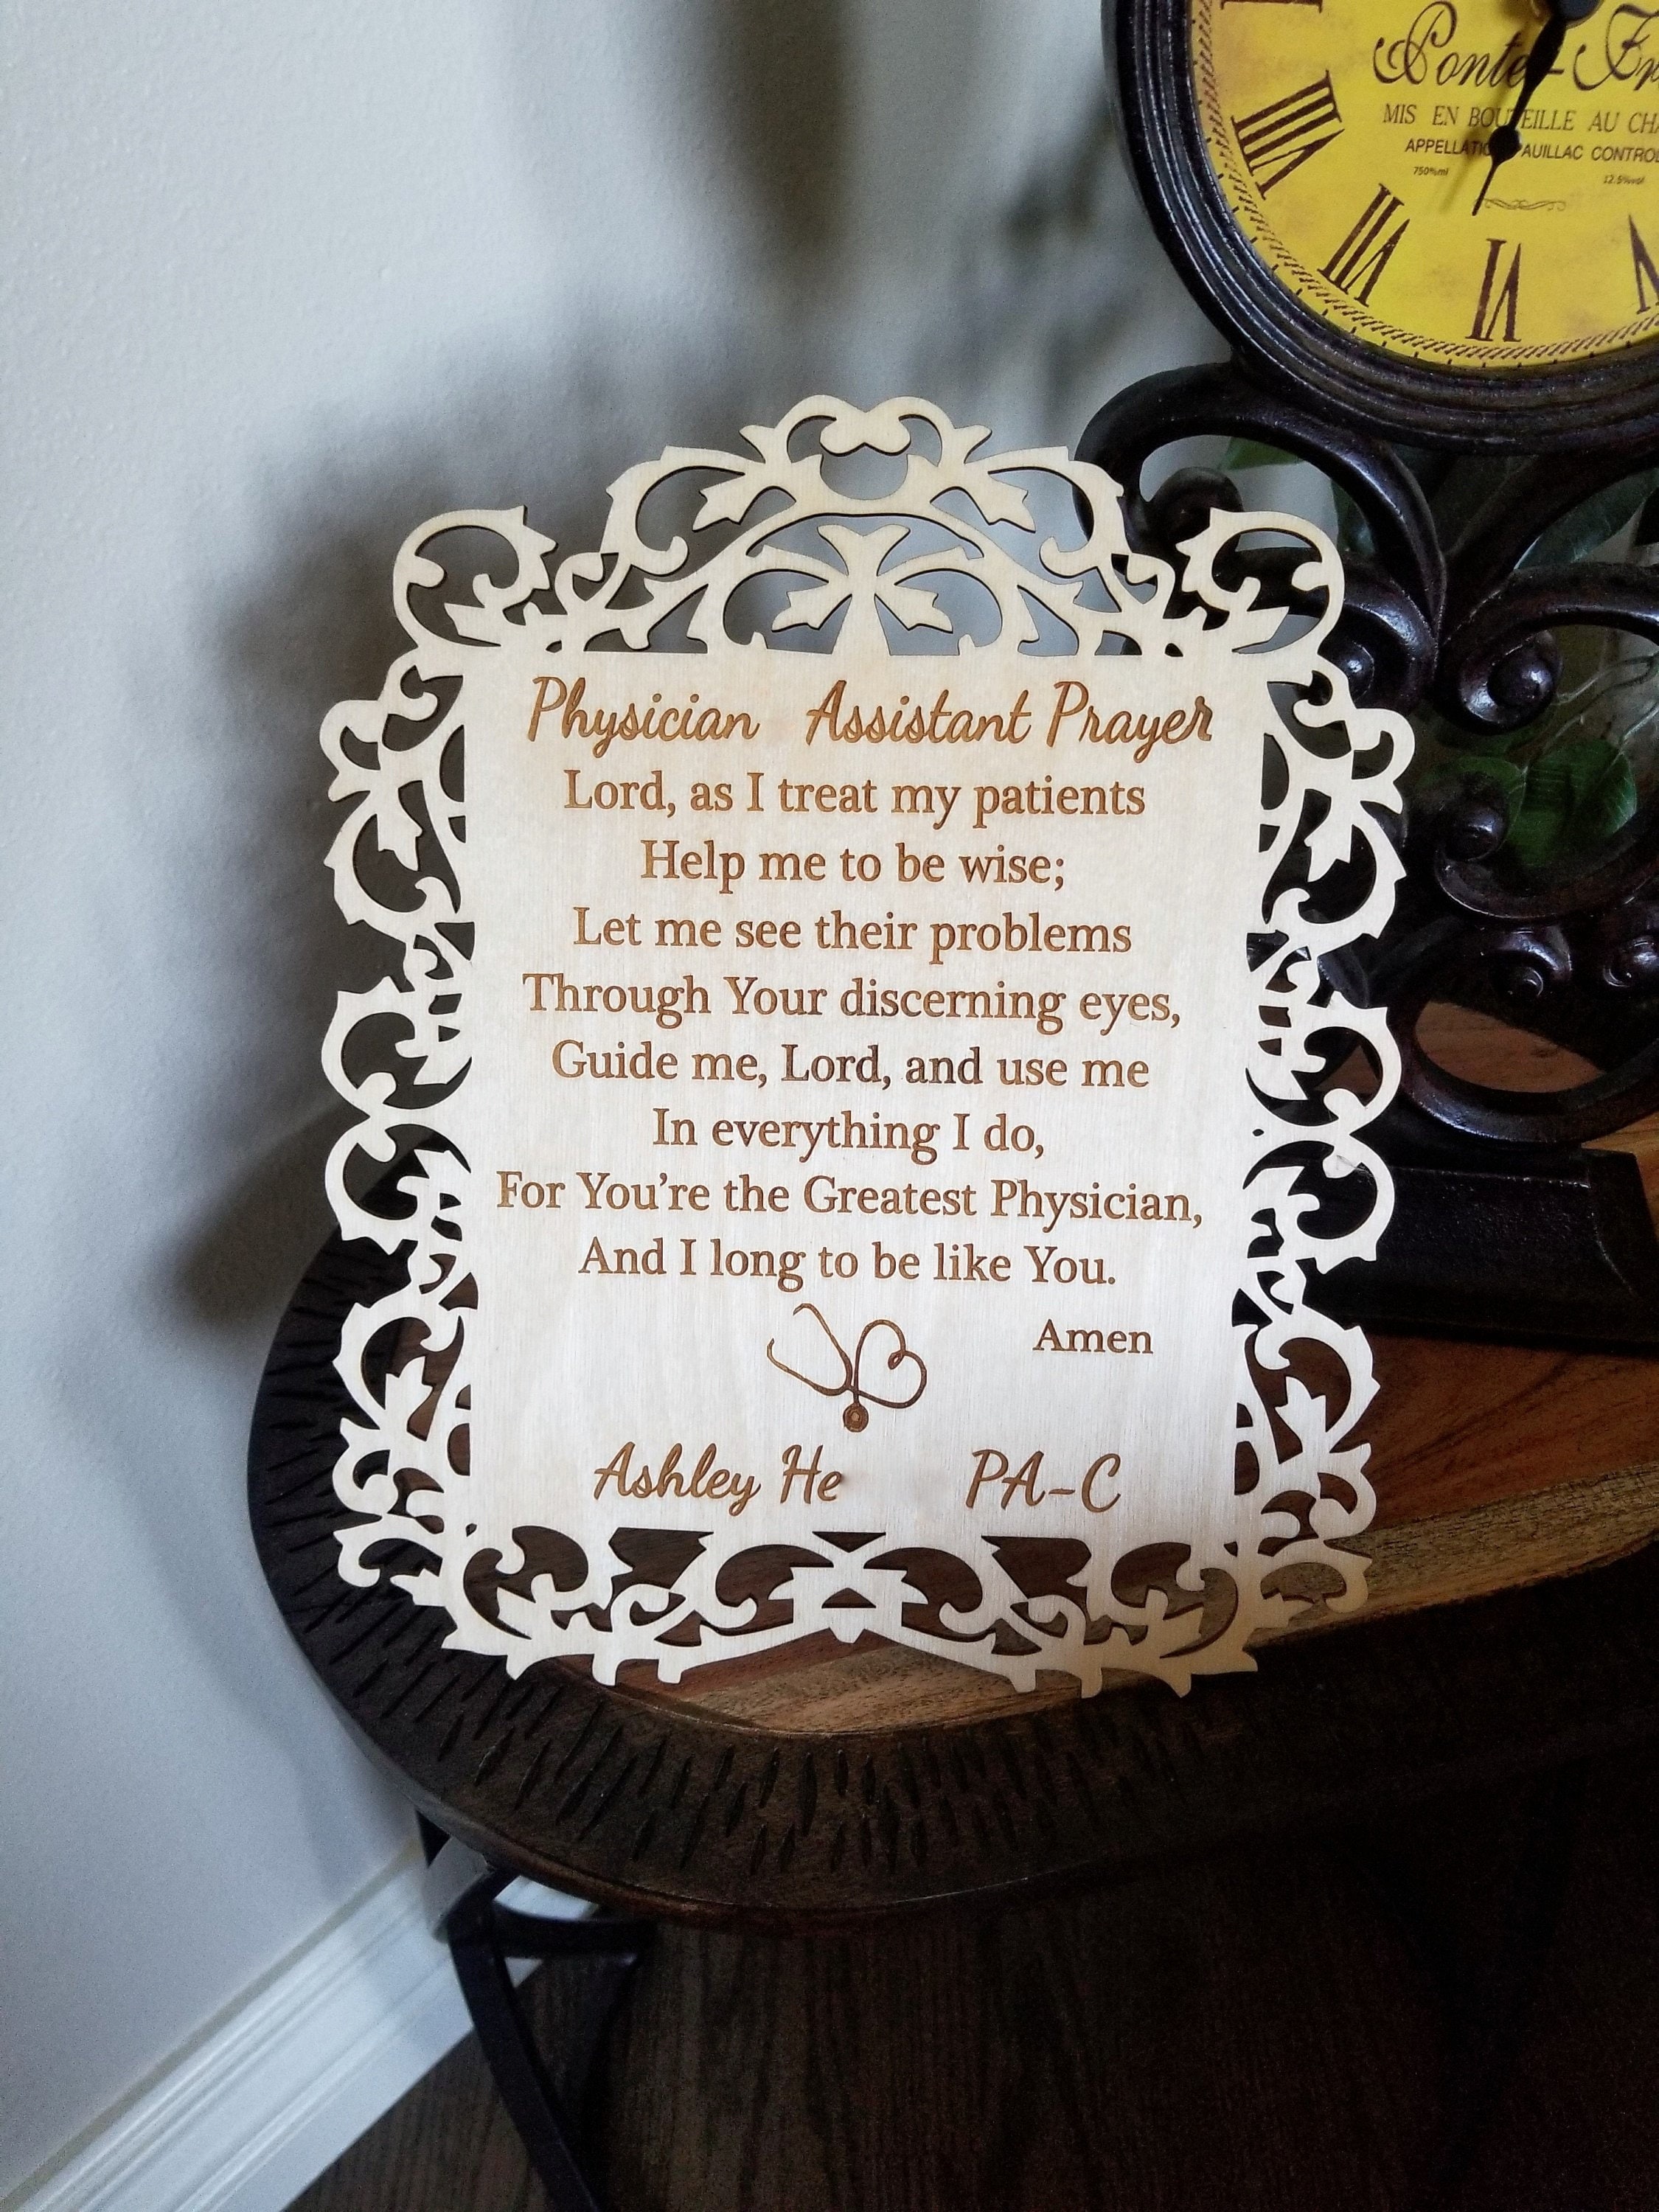 Ponte-Fr
MIS EN BOUTEILLE AU CHA
APPELLATIO PAUILLAC CONTROL
750%ml 12.5%vol
Physician Assistant Prayer
Lord, as I treat my patients
Help me to be wise;
Let me see their problems
Through Your discerning eyes,
Guide me, Lord, and use me
In everything I do,
For You're the Greatest Physician,
And I long to be like You.
Amen
Ashley He PA-C